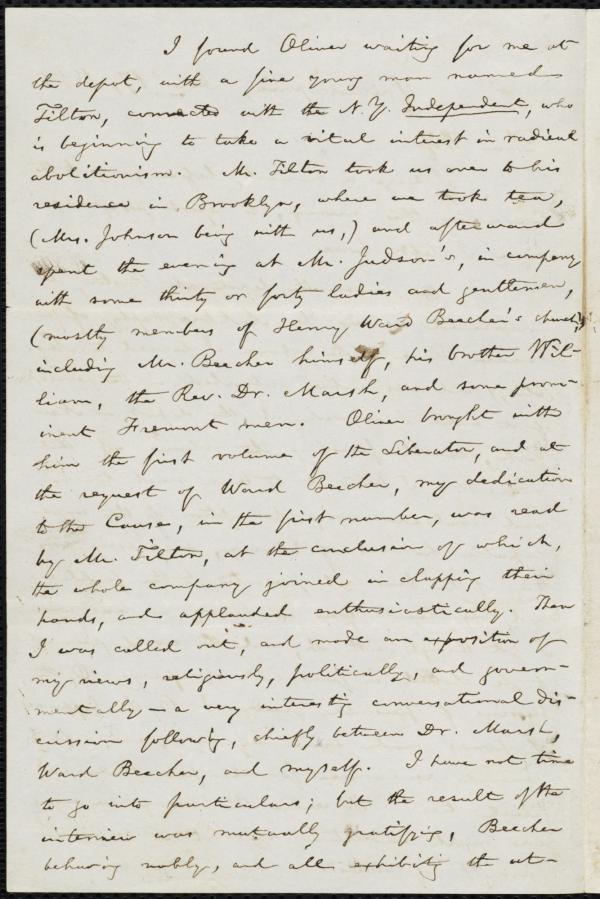 I found Oliver waiting for me at
the depot, with a fine young man named
Tilton, connected with the N.Y. Independent, who
is beginning to take a vital interest in radical
abolitionism. Mr. Tilton took us over to his
residence in Brooklyn, where we took tea,
(Mrs. Johnson being with us,) and afterward
spent the evening at Mr. Judson's, in company
with some thirty or forty ladies and gentlemen,
(mostly members of Henry Ward Beecher's church,)
including Mr. Beecher himself, his brother Wil-
liam, the Rev. Dr. Marsh, and some prom-
inent Fremont men. Oliver brought with
him the first volume of the Liberator, and at
the request of Ward Beecher, my dedication
to the Cause, in the first number, was read
by Mr. Tilton, at the conclusion of which,
the whole company joined in clapping their
hands, and applauded enthusiastically. Then
I was called out, and made an exposition of
my views, religiously, politically, and govern-
mentally — a very interesting conversational dis-
cussion following, chiefly between Dr. Marsh,
Ward Beecher, and myself. I have not time
to go into particulars; but the result of the
interview was mutually gratifying, Beecher
behaving nobly, and all exhibiting the ut-